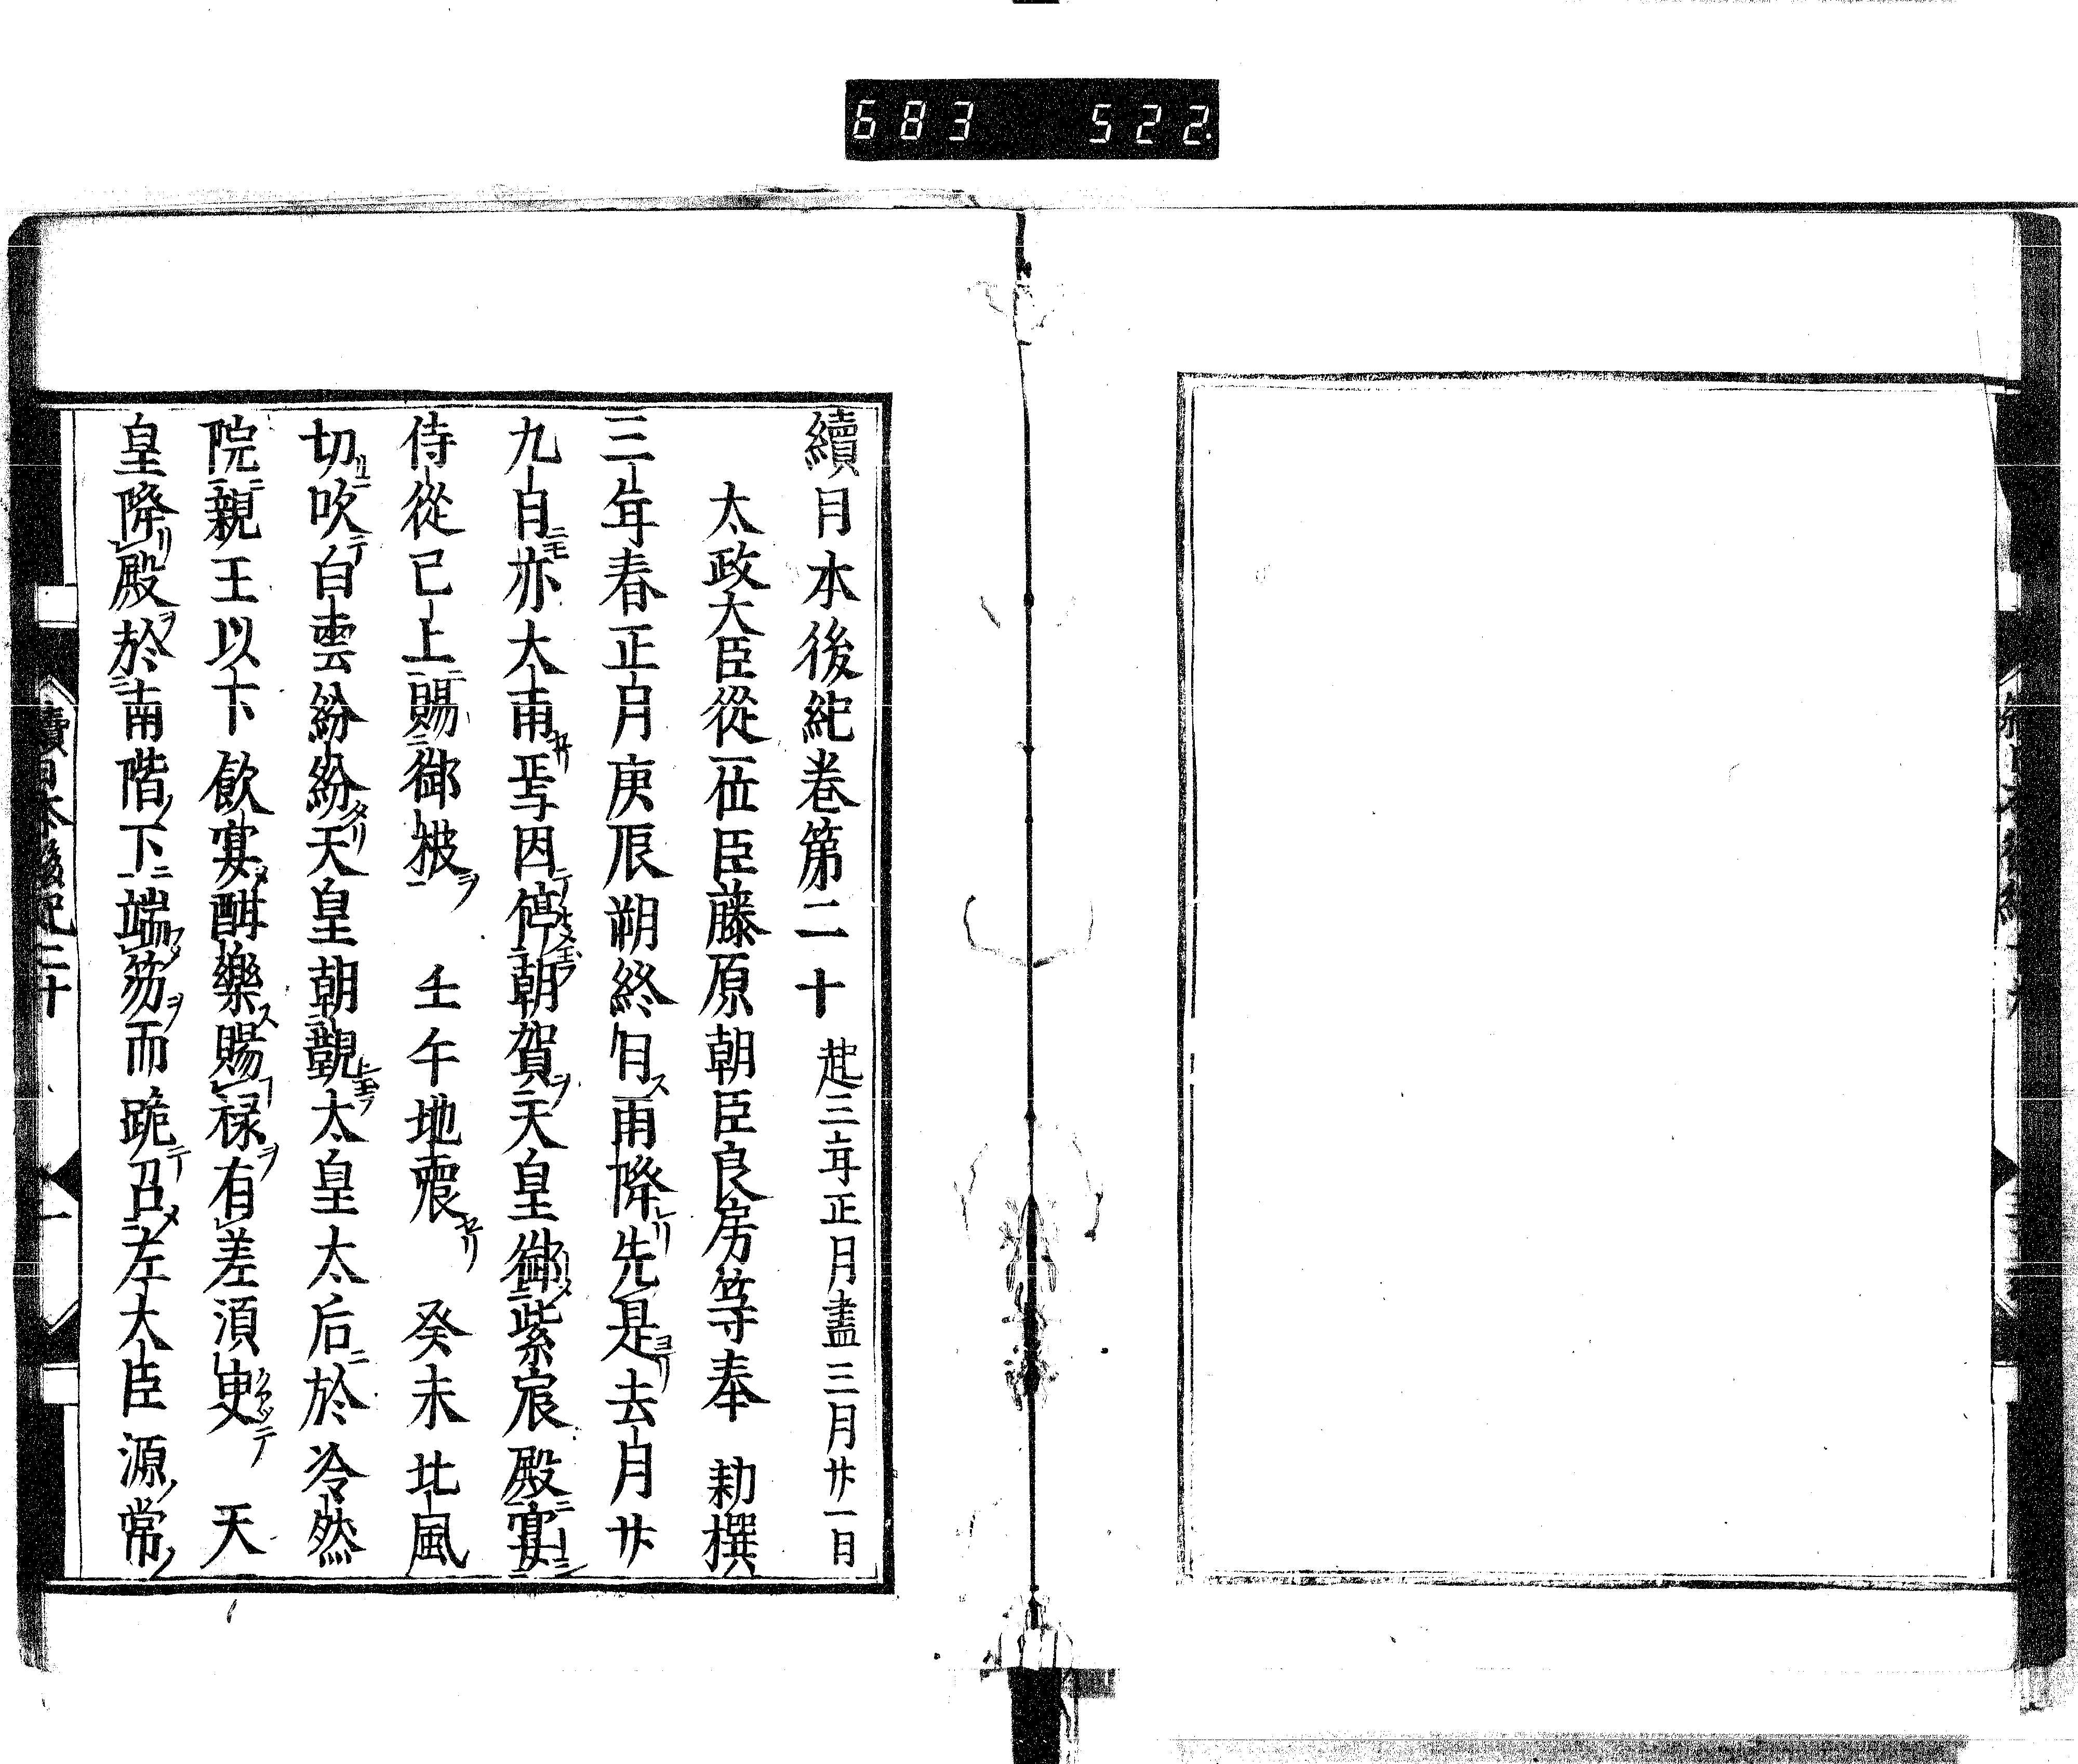 683 522
續日本後紀卷第二十 起三年正月盡三月廿一日
太政大臣從一位臣藤原朝臣良房等奉 勅撰
三年春正月庚辰朔終日雨降先是去月廿
九日亦大雨焉因停朝賀天皇御紫宸殿宴
侍從已上賜御被 壬午地震 癸未北風
切吹白雲紛紛天皇朝覲太皇太后於冷然
院親王以下飲宴酣樂賜祿有差須臾 天
皇降殿於南階下端笏而跪召左大臣源常
續日本後紀二十 一